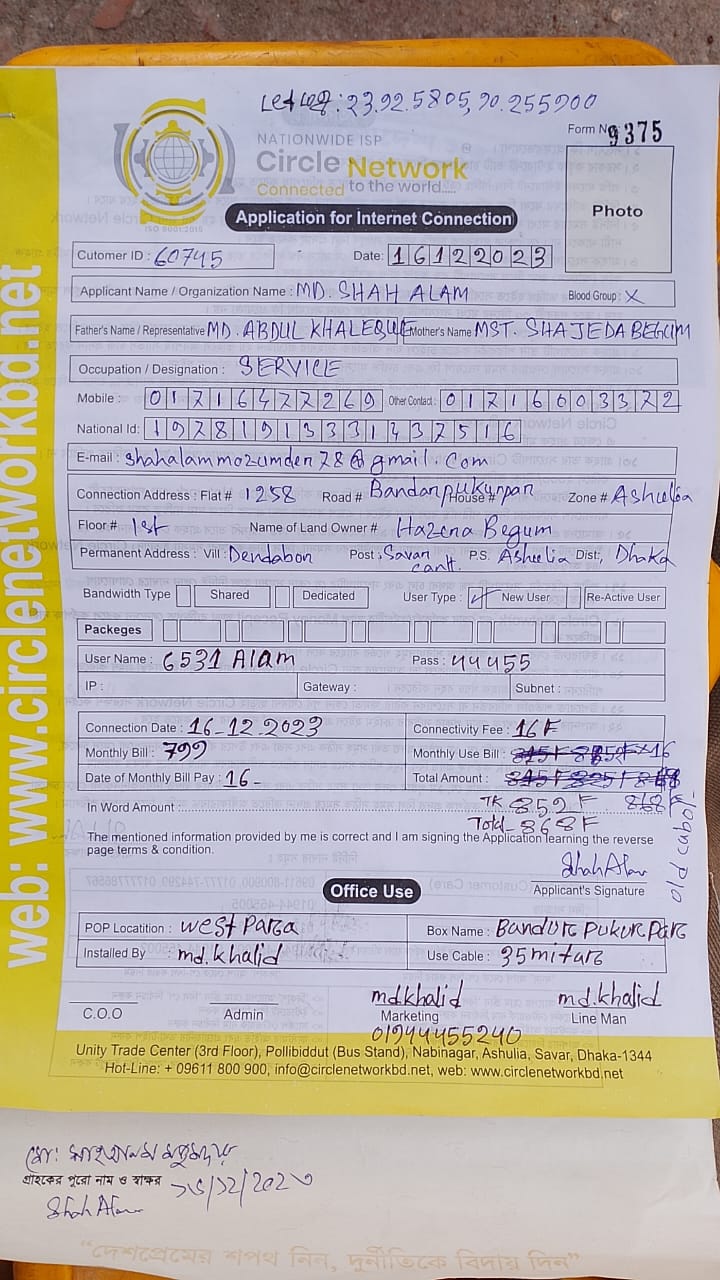 23.92.5805,90.255900
Form No 9375
NATIONWIDE ISP
Circle Network
Connected to the world....
ISO 9001:2015
Photo
Application for Internet Connection
Cutomer ID : 60745 Date: 16122023
Applicant Name / Organization Name : MD. SHAH ALAM Blood Group : X
Father's Name / Representative MD. ABDUL KHALEQUE Mother's Name MST. SHAJEDA BEGUM
Occupation / Designation : SERVICE
Mobile : 01716477269 Other Contact : 01716003372
National Id: 19781913331437516
E-mail : shahalammozumder78@gmail.com
Connection Address : Flat # 1258 Road # Bandarpukurpar House # Zone # Ashulia
Floor # 1st Name of Land Owner # Hazena Begum
Permanent Address : Vill : Dendabon Post : Savar cant. P.S. Asheelia Dist; Dhaka
Bandwidth Type Shared Dedicated User Type : ✓ New User Re-Active User
Packeges
User Name : 6531 Alam Pass : 44455
IP : Gateway : Subnet :
Connection Date : 16-12-2023 Connectivity Fee : 16F
Monthly Bill : 799 Monthly Use Bill : 16
Date of Monthly Bill Pay : 16- Total Amount :
In Word Amount : TK 852F 868
Total- 868F
old cabol-
The mentioned information provided by me is correct and I am signing the Application learning the reverse
page terms & condition.
Shah Alam
Applicant's Signature
Office Use
POP Locatition : West Para Box Name : Bandure Pukur Para
Installed By : md.khalid Use Cable : 35mitar
md khalid md.khalid
C.O.O Admin Marketing Line Man
01944455240
Unity Trade Center (3rd Floor), Pollibiddut (Bus Stand), Nabinagar, Ashulia, Savar, Dhaka-1344
Hot-Line: + 09611 800 900, info@circlenetworkbd.net, web: www.circlenetworkbd.net
web: www.circlenetworkbd.net
মো: শাহআলম মজুমদার
গ্রাহকের পুরো নাম ও স্বাক্ষর ১৬/১২/২০২৩
Shah Alam
“দেশপ্রেমের শপথ নিন, দুর্নীতিকে বিদায় দিন”